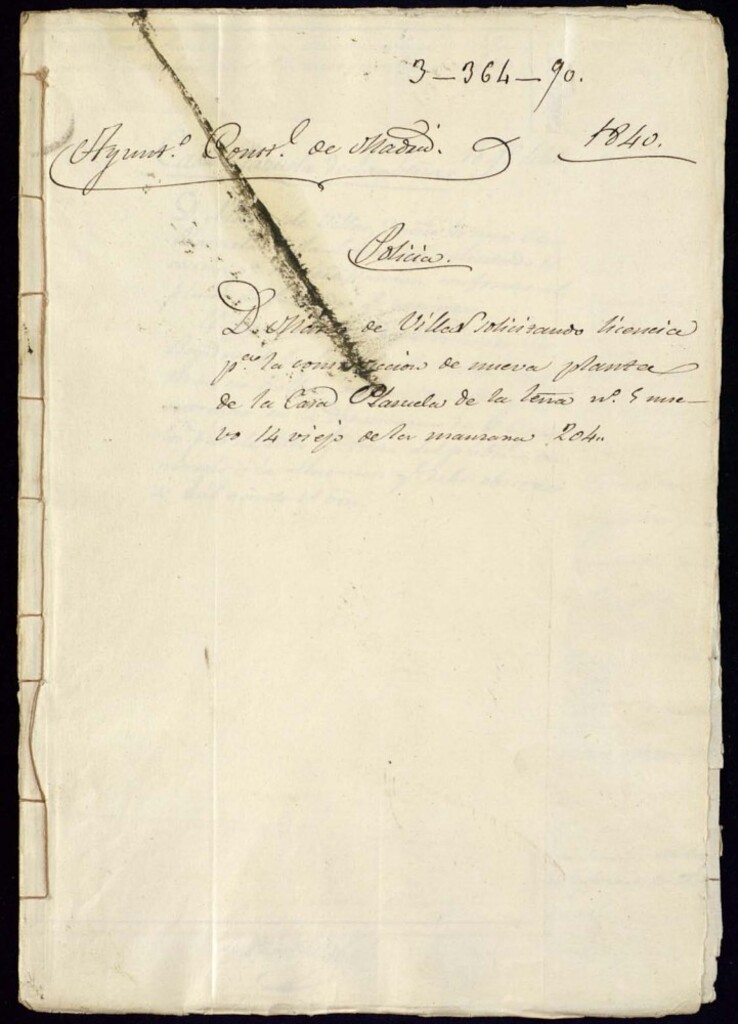 3-364-90.
Ayunt.º Const.l de Madrid. 1840.
Policia.
D. de Villa solicitando licencia
p.ª la construccion de nueva planta
de la Casa Plazuela de la Leña nº. 5 nue-
vo 14 viejo de la manzana 204.